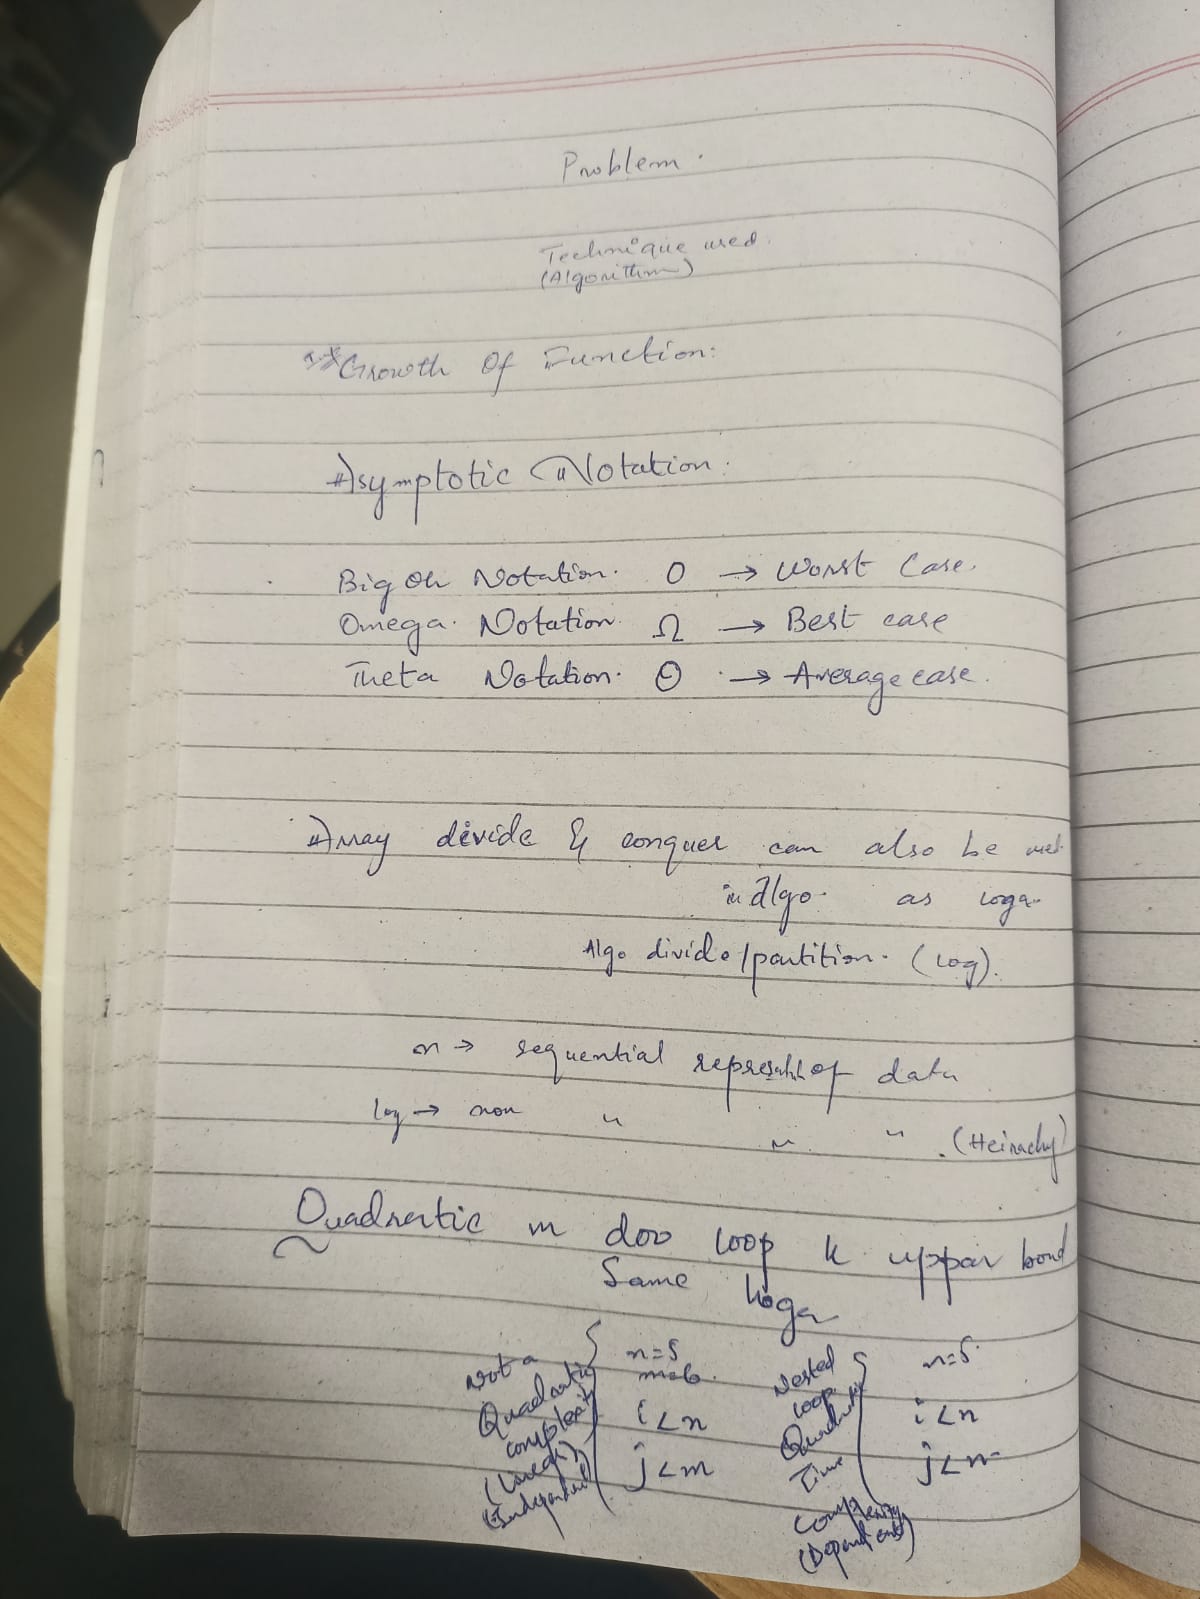 Problem.
Technique used.
(Algorithm)
Growth Of Function:
Asymptotic Notation:
Big Oh Notation. O → Worst Case.
Omega. Notation Ω → Best case
Theta Notation. Θ → Average case.
Array divide & conquer can also be used
in Algo. as loga.
Algo divide/partition. (log).
n → sequential represnt of data
log → non " " " (Heirachy)
Quadratic m doo loop k uppar bond
Same hoga
not a
Quadratic
complexity
(Linear)
(Independent)
n=5
m=6.
i<n
j<m
Nested
loop
Quadratic
Time
Complexity
(Dependent)
n=5.
i<n
j<n